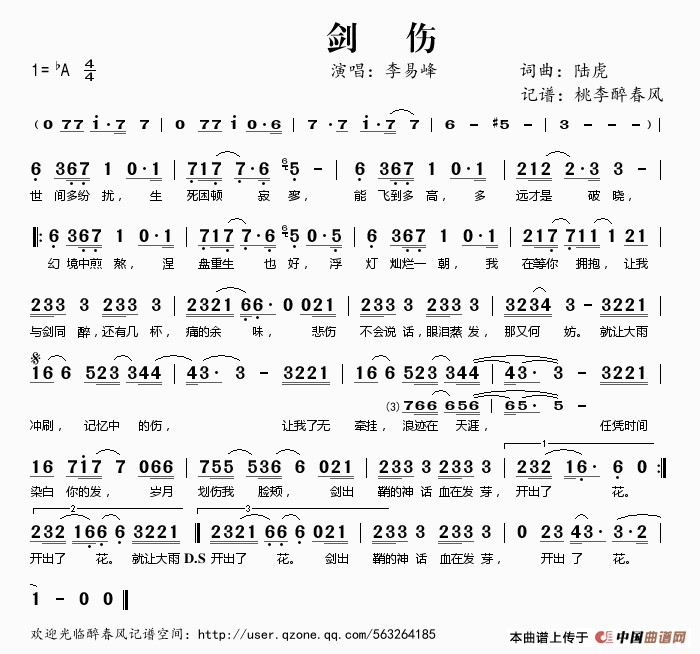 剑 伤
1=♭A 4/4 演唱：李易峰 词曲：陆虎
记谱：桃李醉春风
（0 77 i·7 7 | 0 77 i 0·6 | 7 ·7 i·7 7 | 6 - #5 - | 3 - - - ）|
6 367 1 0·1 | 717 7·6 6 5 - | 6 367 1 0·1 | 212 2·3 3 - |
世 间多纷 扰， 生 死困顿 寂 寥， 能 飞到多 高， 多 远才是 破 晓，
|: 6 367 1 0·1 | 717 7·6 6 5 0·5 | 6 367 1 0·1 | 217 711 1 21 |
幻 境中煎 熬， 涅 盘重生 也 好， 浮 灯 灿烂一 朝， 我 在等你 拥抱， 让我
233 3 233 3 | 2321 66· 0 021 | 233 3 233 3 | 3234 3 - 3221 |
与剑同 醉， 还有几 杯， 痛的余 味， 悲伤 不会说 话， 眼泪蒸 发， 那又何 妨。 就让大雨
𝄋
16 6 523 344 | 43· 3 - 3221 | 16 6 523 344 | 43· 3 - 3221 |
(3) 766 656 | 65· 5 -
冲刷， 记忆中 的伤， 让我了无 牵挂， 浪迹在 天涯， 任凭时间
1
16 7i7 7 066 | 755 536 6 021 | 233 3 233 3 | 232 16· 6 0 :|
染白 你的发， 岁月 划伤我 脸颊， 剑出 鞘的神 话 血在发 芽， 开出了 花。
2 3
232 166 6 3221 || 2321 66 6 021 | 233 3 233 3 | 0 23 43· 3·2 |
开出了 花。 就让大雨 D.S 开出了 花。 剑出 鞘的神 话 血在发 芽， 开出 了 花。
1 - 0 0 ||
欢迎光临醉春风记谱空间：http://user.qzone.qq.com/563264185
本曲谱上传于 中国曲谱网